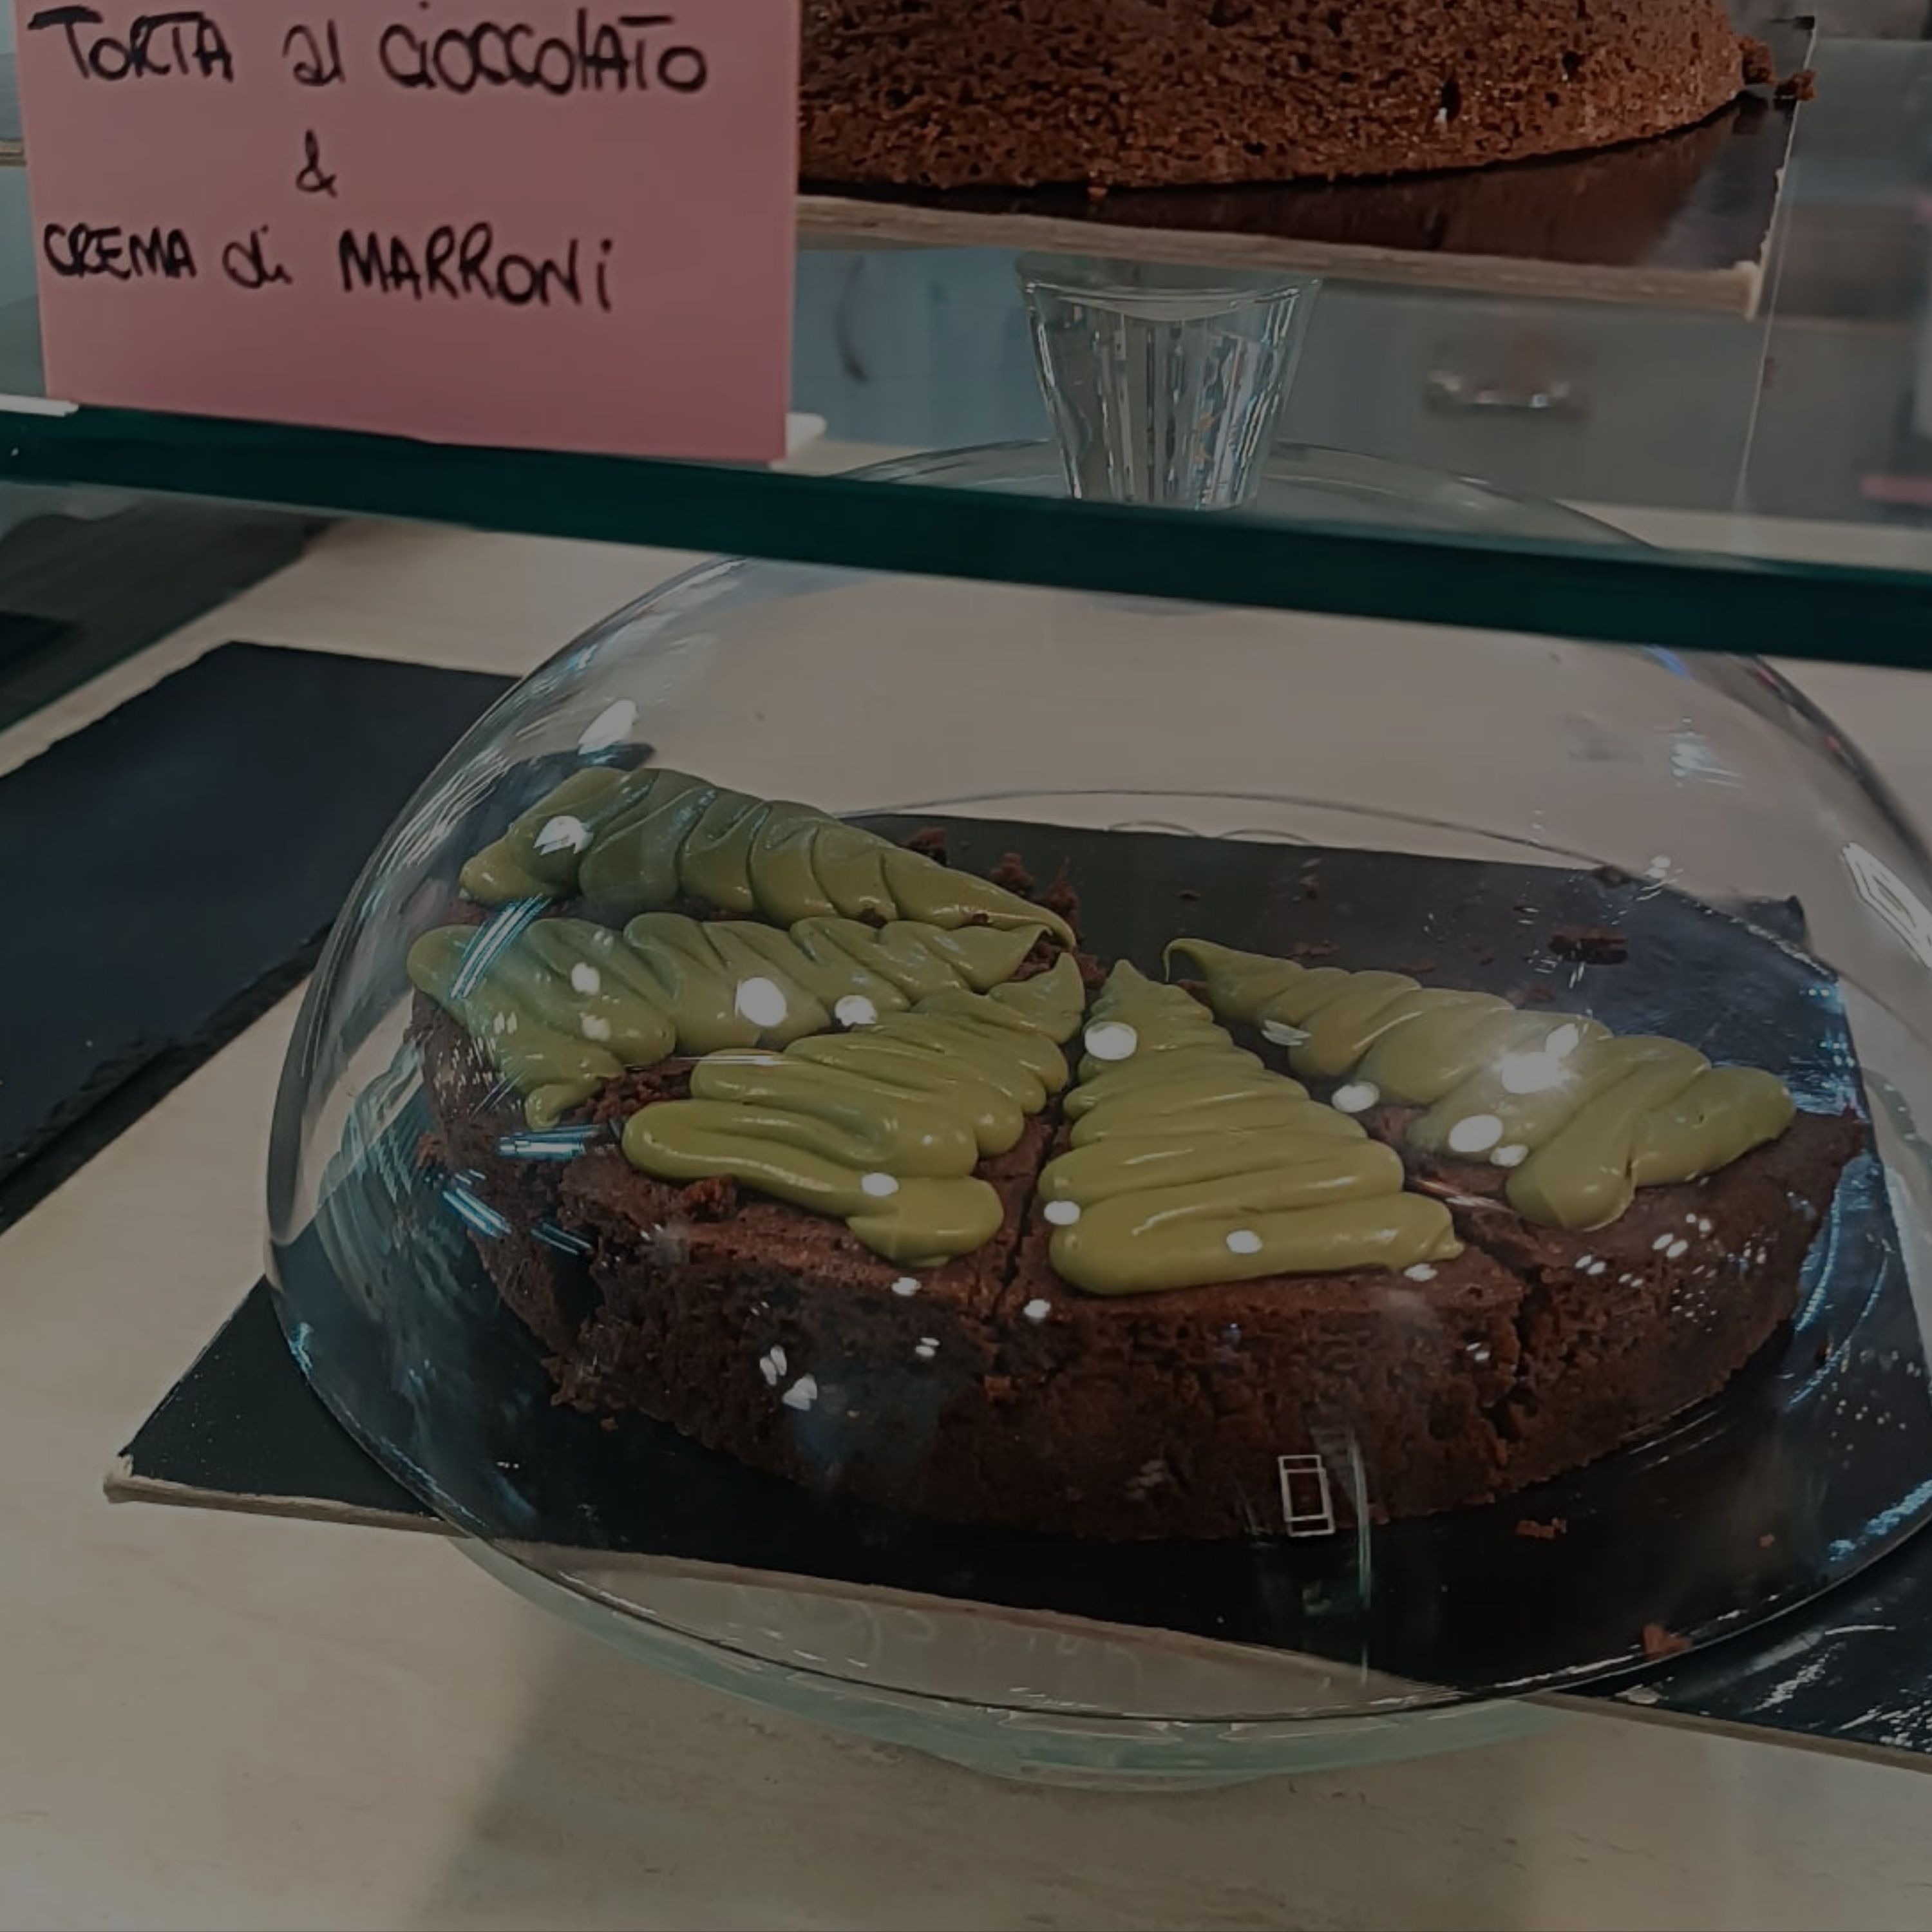 TORTA al CiOCColATo
&
CREMA di MARRoNi